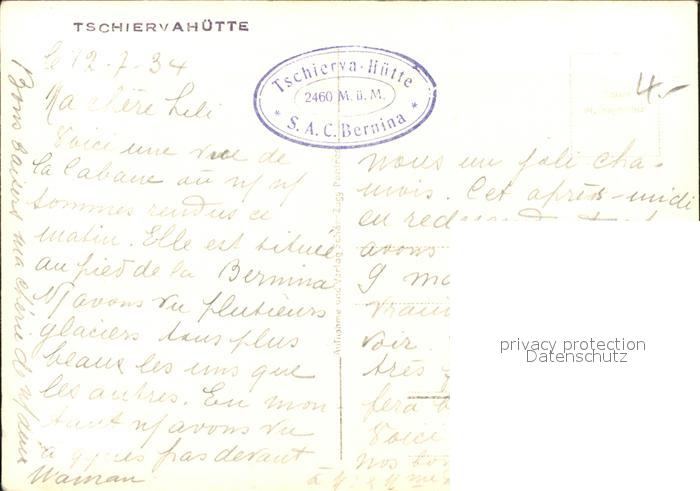 TSCHIERVAHÜTTE
le 12-7-34
Tschierva-Hütte
2460 M.ü.M.
* S.A.C. Bernina *
4.-
Ma chère Lili
Voici une vue de
la Cabane où n/ n/
sommes rendus ce
matin. Elle est située
au pied de la Bernina
N/ avons vu plusieurs
glaciers tous plus
beaux les uns que
les autres. En mon
tant n/ avons vu
à qques pas devant
nous un joli cha-
mois. Cet après-midi
en
avons
9
vrai
voir.
très
fera
Voici
nos
Maman
Bons baisers ma chérie de n/ deux
Aufnahme und Verlag Schär, Zugg
privacy protection
Datenschutz